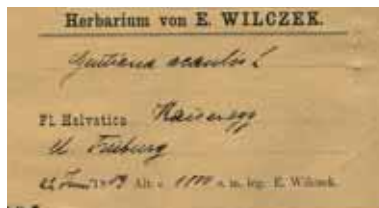 Herbarium von E. WILCZEK.
Gentiana acaulis L
Fl. Helvetica Kaiseregg
Ct. Freiburg
Juni Alt. c. s. m. leg. E. Wilczek.